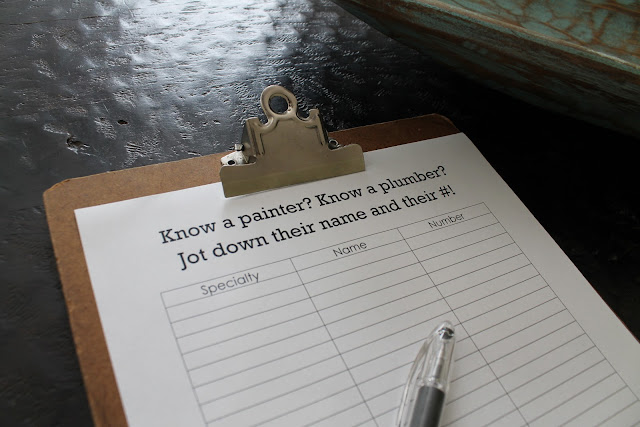 Know a painter? Know a plumber?
Jot down their name and their #!
Specialty Name Number